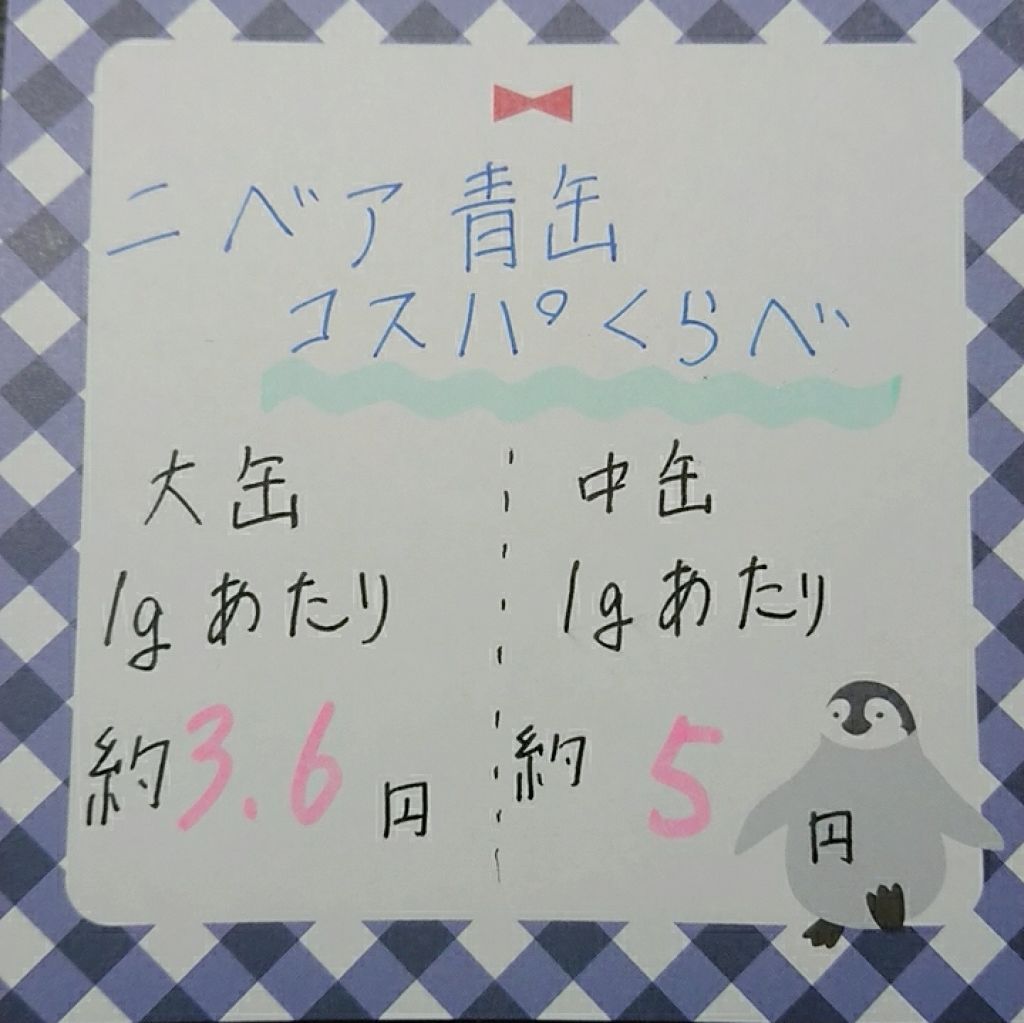 ニベア青缶
コスパくらべ
大缶
1gあたり
約3.6円
中缶
1gあたり
約5円